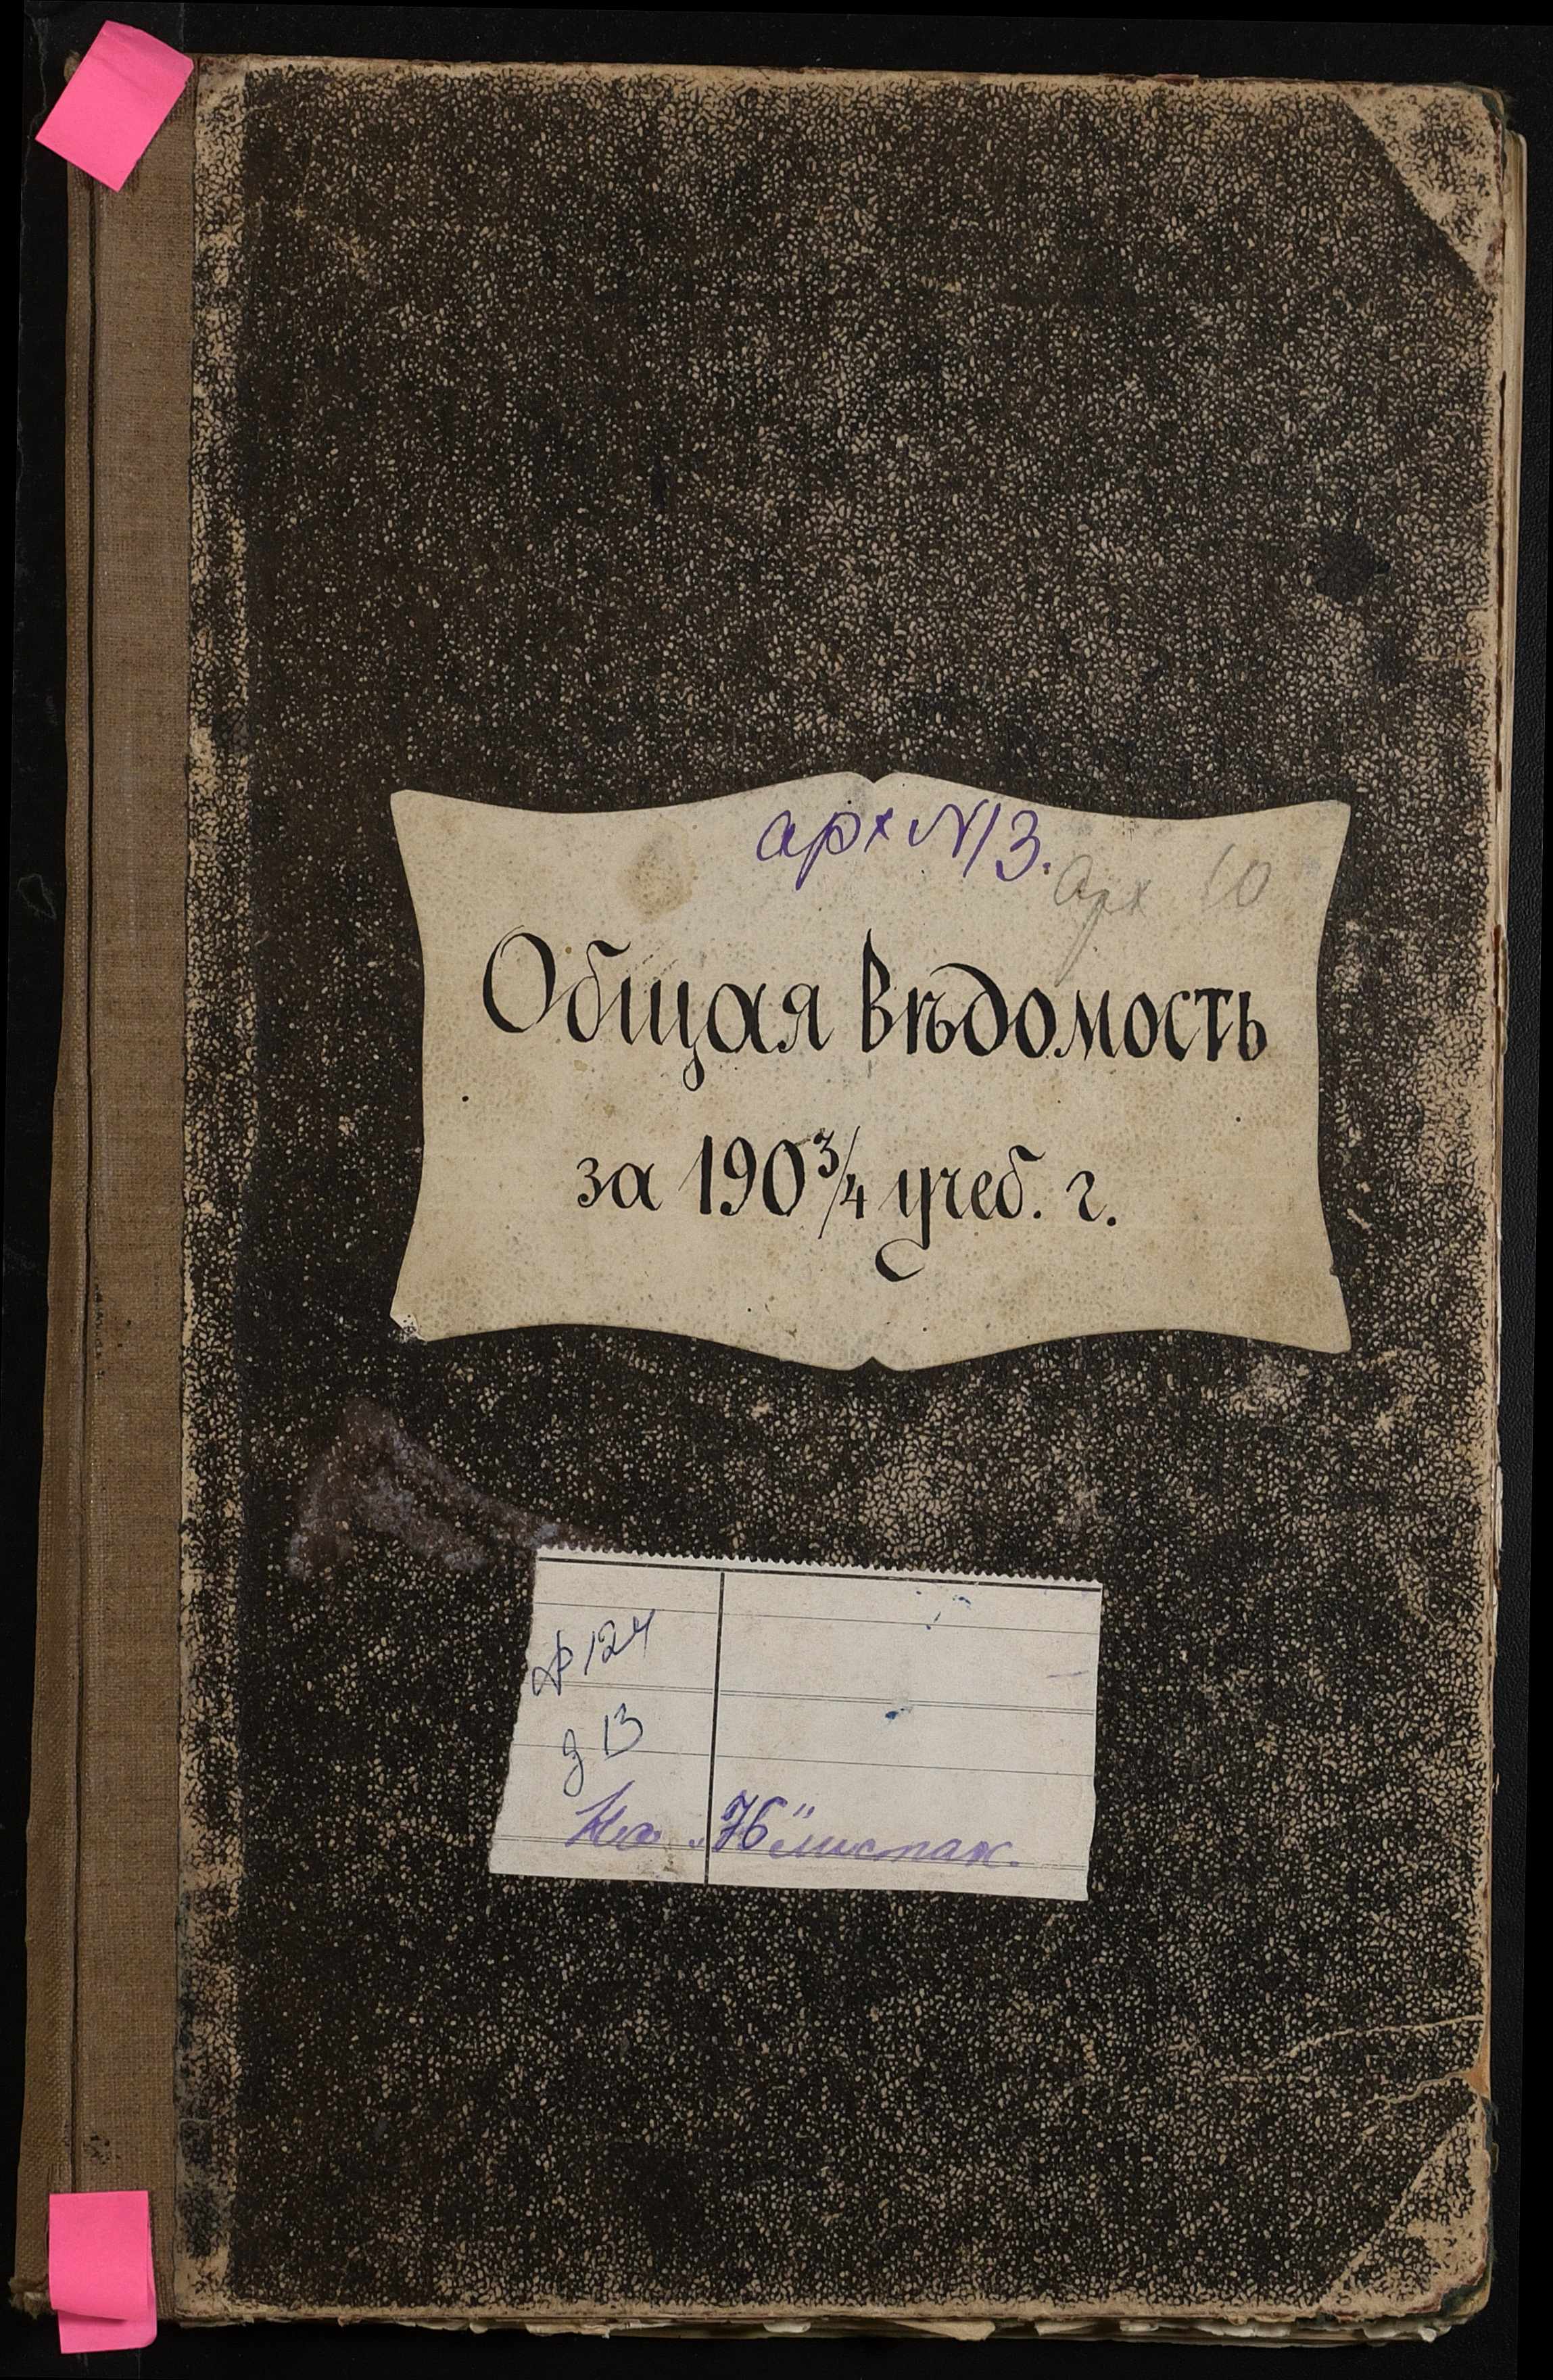 арх №13.
арх 10
Общая вѣдомость
за 190¾ учеб. г.
ф 124
д 13
На „76" листах.